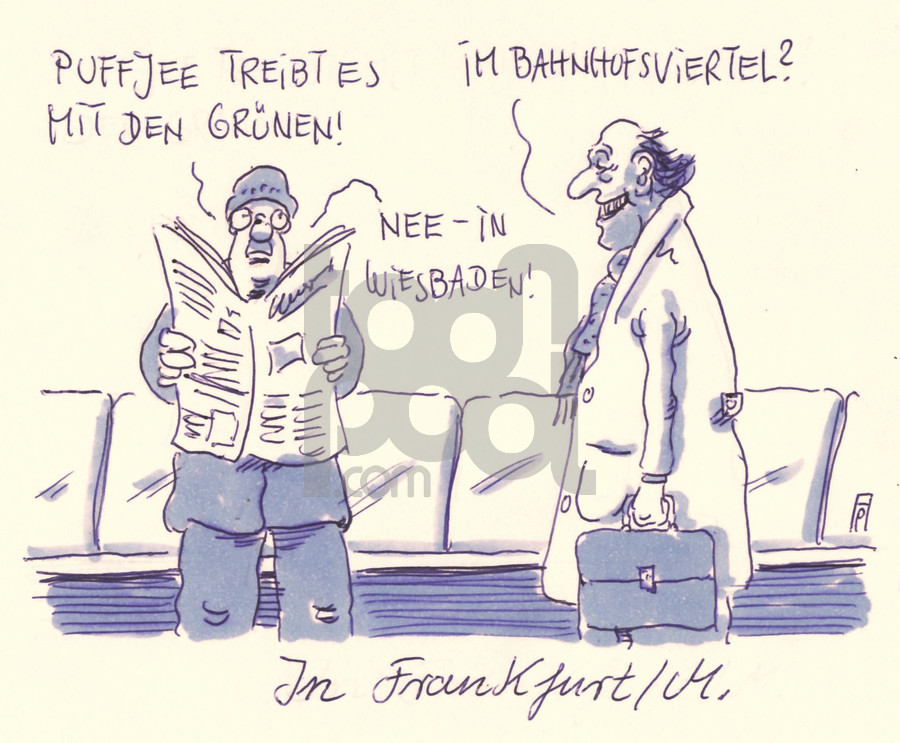 PUFFJEE TREIBT ES
MIT DEN GRÜNEN!
IM BAHNHOFSVIERTEL?
NEE - IN
WIESBADEN!
toonpool
.com
In Frankfurt/M.